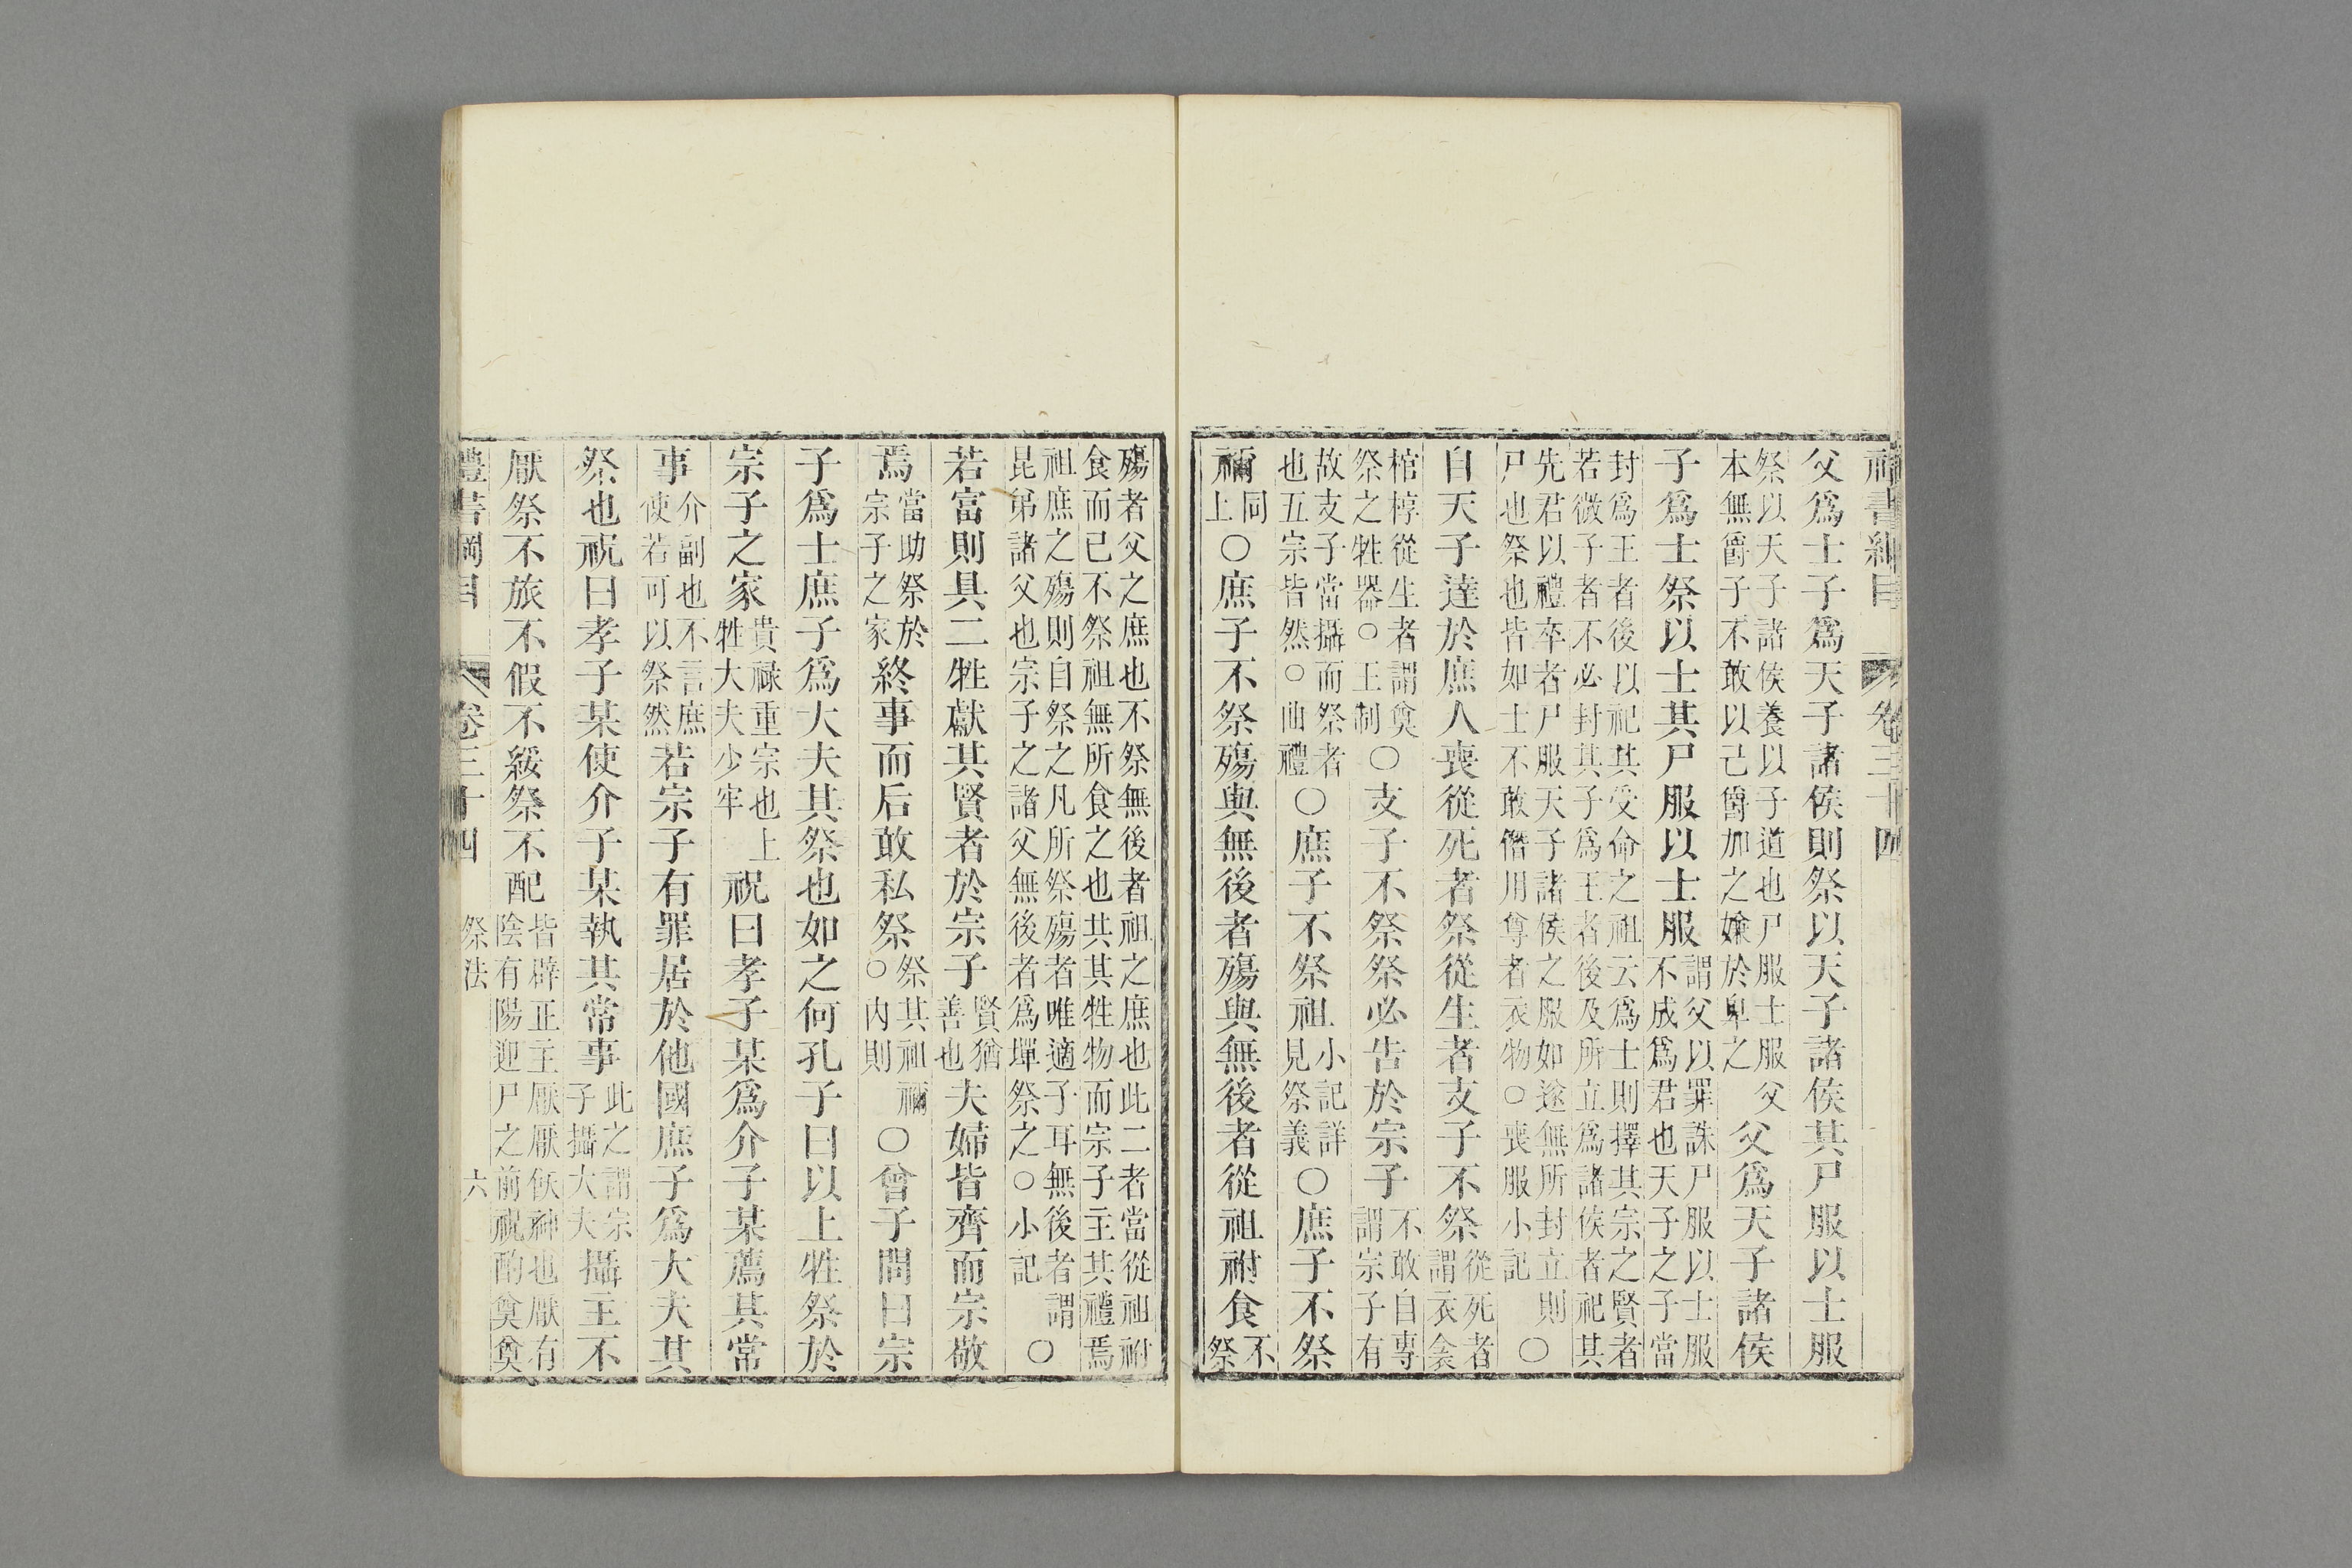 禮書綱目 卷三十四
父爲士子爲天子諸侯則祭以天子諸侯其尸服以士服
祭以天子諸侯養以子道也尸服士服父
本無爵子不敢以己爵加之嫌於卑之
父爲天子諸侯
子爲士祭以士其尸服以士服
謂父以罪誅尸服以士服
不成爲君也天子之子當
封爲王者後以祀其受命之祖云爲士則擇其宗之賢者
若微子者不必封其子爲王者後及所立爲諸侯者祀其
先君以禮卒者尸服天子諸侯之服如遂無所封立則
尸也祭也皆如士不敢僭用尊者衣物○喪服小記
○
自天子達於庶人喪從死者祭從生者支子不祭
從死者
謂衣衾
棺椁從生者謂奠
祭之牲器○王制
○支子不祭祭必告於宗子
不敢自專
謂宗子有
故支子當攝而祭者
也五宗皆然○曲禮
○庶子不祭祖
小記詳
見祭義
○庶子不祭
禰
同
上
○庶子不祭殤與無後者殤與無後者從祖祔食
不
祭
殤者父之庶也不祭無後者祖之庶也此二者當從祖祔
食而已不祭祖無所食之也共其牲物而宗子主其禮焉
祖庶之殤則自祭之凡所祭殤者唯適子耳無後者謂
昆弟諸父也宗子之諸父無後者爲墠祭之○小記
○
若富則具二牲獻其賢者於宗子
賢猶
善也
夫婦皆齊而宗敬
焉
當助祭於
宗子之家
終事而后敢私祭
祭其祖禰
○內則
○曾子問曰宗
子爲士庶子爲大夫其祭也如之何孔子曰以上牲祭於
宗子之家
貴祿重宗也上
牲大夫少牢
祝曰孝子某爲介子某薦其常
事
介副也不言庶
使若可以祭然
若宗子有罪居於他國庶子爲大夫其
祭也祝曰孝子某使介子某執其常事
此之謂宗
子攝大夫
攝主不
厭祭不旅不假不綏祭不配
皆辟正主厭厭飫神也厭有
陰有陽迎尸之前祝酌奠奠
禮書綱目 卷三十四
祭法 六